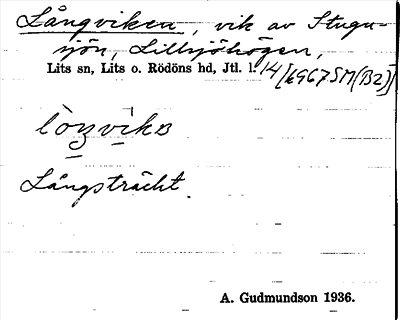 Långviken, vik av Stugu-
sjön, Lillsjöhögen,
Lits sn, Lits o. Rödöns hd, Jtl. l. 14/6967 SM(B2)]
Långsträckt.
A. Gudmundson 1936.